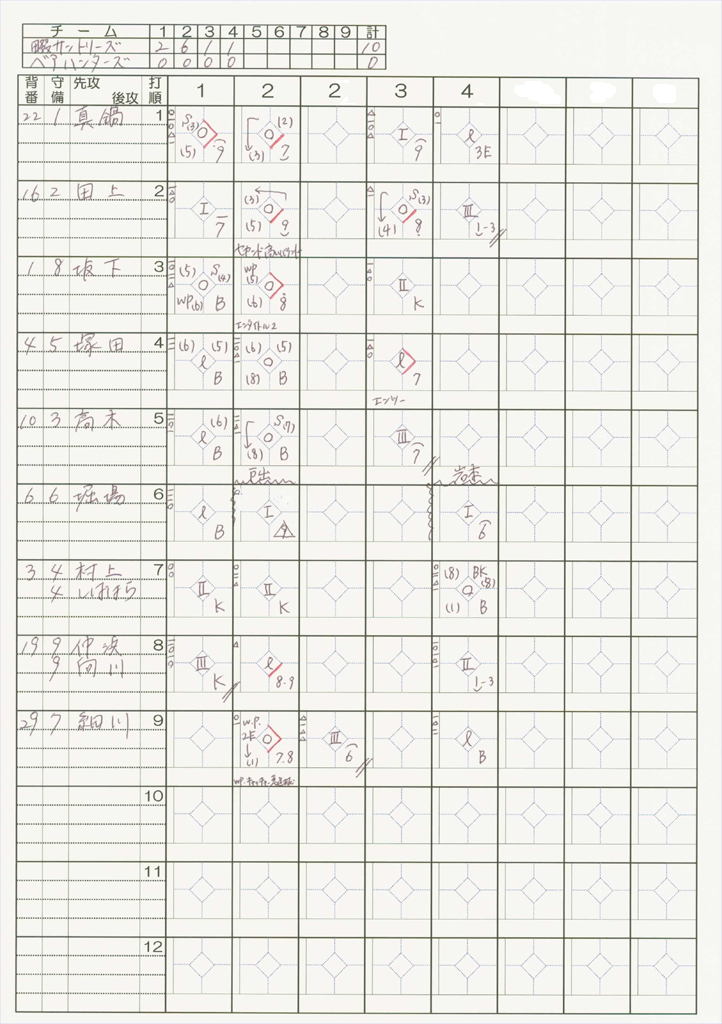 チーム 1 2 3 4 5 6 7 8 9 計
サンドリーズ 2 6 1 1 10
ベアハンターズ 0 0 0 0 0
背番 守備 先攻 後攻 打順 1 2 2 3 4
22 1 真鍋 1
S(3) (5) 9
(2) (3) 7
I 9
l 3E
16 2 田上 2
I 7
(3) (5) 9
S(3) (4) 8
III 1-3
1 8 坂下 3
(5) S(4) WP(6) B
WP (5) (6) 8
II K
エンタイトル2
4 5 塚田 4
(6) (5) l B
(6) (5) (8) B
l 7
エンツー
10 3 高木 5
(6) l B
S(7) (8) B
III 7
6 6 堀場 6
l B
I 9
I 6
3 4 村上 7
4 しばはら
II K
II K
(8) BK (8) (1) B
19 9 8
9 向川
III K
l 8.9
II 1-3
29 7 細川 9
W.P. 2E (1) 7.8
III 6
l B
10
11
12